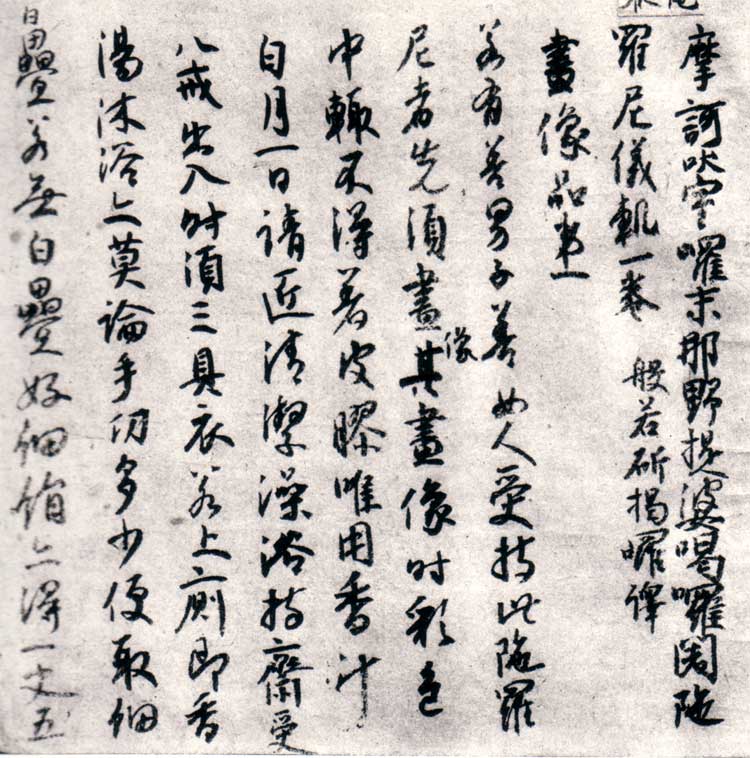 摩訶吠室囉末那野提婆喝囉闍陁
羅尼儀軌一卷 般若斫揭囉譯
畫像品第一
若有善男子善女人受持此陁羅
尼者先須畫像其畫像时彩色
中輙不得著皮膠唯用香汁
白月一日請近清潔澡浴持齋受
八戒出入时須三具衣若上廁即香
湯沐浴亦莫論手功多少便取細
白㲲若無白㲲好細絹亦得一丈五